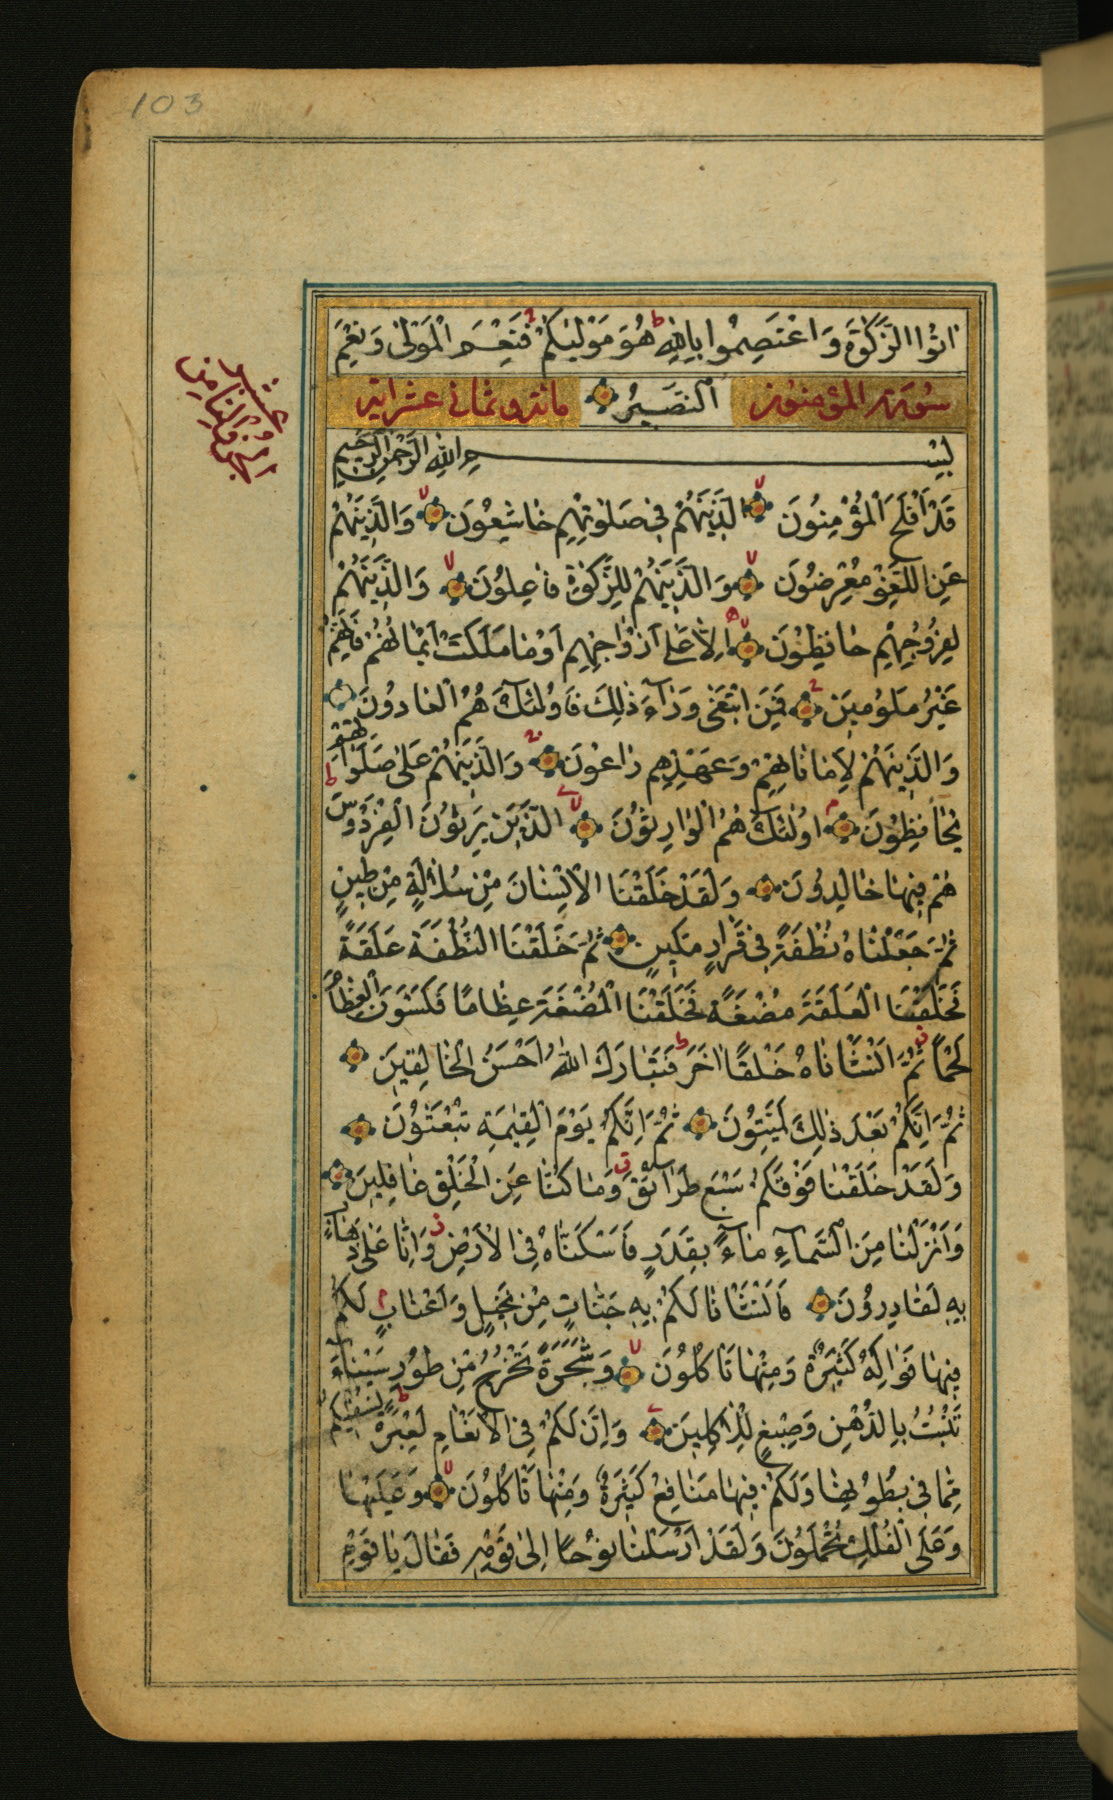 103
اتُوا الزَّكٰوةَ وَاعْتَصِمُوا بِاللّٰهِ هُوَ مَوْلٰيكُمْ فَنِعْمَ الْمَوْلٰى وَنِعْمَ
سورة المؤمنون النَّصِيرُ مائة و ثمانی عشر اية
الجزؤ الثامن عشر
بِسْمِ اللهِ الرَّحْمٰنِ الرَّحِيمِ
قَدْ اَفْلَحَ الْمُؤْمِنُونَ الَّذِينَهُمْ فِي صَلٰوتِهِم خَاشِعُونَ وَالَّذِينَهُمْ
عَنِ اللَّغْوِ مُعْرِضُونَ وَالَّذِينَهُمْ لِلزَّكٰوةِ فَاعِلُونَ وَالَّذِينَهُمْ
لِفُرُوجِهِم حَافِظُونَ اِلَّا عَلٰى اَزْوَاجِهِم اَوْ مَا مَلَكَتْ اَيْمَانُهُمْ فَاِنَّهُمْ
غَيْرُ مَلُومِينَ فَمَنِ ابْتَغٰى وَرَاءَ ذٰلِكَ فَاُولٰئِكَ هُمُ الْعَادُونَ
وَالَّذِينَهُمْ لِاَمَانَاتِهِمْ وَعَهْدِهِم رَاعُونَ وَالَّذِينَهُمْ عَلٰى صَلَوَاتِهِمْ
يُحَافِظُونَ اُولٰئِكَ هُمُ الْوَارِثُونَ الَّذِينَ يَرِثُونَ الْفِرْدَوْسَ
هُمْ فِيهَا خَالِدُونَ وَلَقَدْ خَلَقْنَا الْاِنْسَانَ مِنْ سُلَالَةٍ مِنْ طِينٍ
ثُمَّ جَعَلْنَاهُ نُطْفَةً فِي قَرَارٍ مَكِينٍ ثُمَّ خَلَقْنَا النُّطْفَةَ عَلَقَةً
فَخَلَقْنَا الْعَلَقَةَ مُضْغَةً فَخَلَقْنَا الْمُضْغَةَ عِظَامًا فَكَسَوْنَا الْعِظَامَ
لَحْمًا ثُمَّ اَنْشَأْنَاهُ خَلْقًا اٰخَرَ فَتَبَارَكَ اللهُ اَحْسَنُ الْخَالِقِينَ
ثُمَّ اِنَّكُمْ بَعْدَ ذٰلِكَ لَمَيِّتُونَ ثُمَّ اِنَّكُمْ يَوْمَ الْقِيٰمَةِ تُبْعَثُونَ
وَلَقَدْ خَلَقْنَا فَوْقَكُمْ سَبْعَ طَرَائِقَ وَمَا كُنَّا عَنِ الْخَلْقِ غَافِلِينَ
وَاَنْزَلْنَا مِنَ السَّمَاءِ مَاءً بِقَدَرٍ فَاَسْكَنَّاهُ فِي الْاَرْضِ وَاِنَّا عَلٰى ذَهَابٍ
بِهِ لَقَادِرُونَ فَاَنْشَأْنَا لَكُمْ بِهِ جَنَّاتٍ مِنْ نَخِيلٍ وَاَعْنَابٍ لَكُمْ
فِيهَا فَوَاكِهُ كَثِيرَةٌ وَمِنْهَا تَاْكُلُونَ وَشَجَرَةً تَخْرُجُ مِنْ طُورِ سَيْنَاءَ
تَنْبُتُ بِالدُّهْنِ وَصِبْغٍ لِلْاٰكِلِينَ وَاِنَّ لَكُمْ فِي الْاَنْعَامِ لَعِبْرَةً نُسْقِيكُمْ
مِمَّا فِي بُطُونِهَا وَلَكُمْ فِيهَا مَنَافِعُ كَثِيرَةٌ وَمِنْهَا تَاْكُلُونَ وَعَلَيْهَا
وَعَلَى الْفُلْكِ تُحْمَلُونَ وَلَقَدْ اَرْسَلْنَا نُوحًا اِلٰى قَوْمِهِ فَقَالَ يَا قَوْمِ